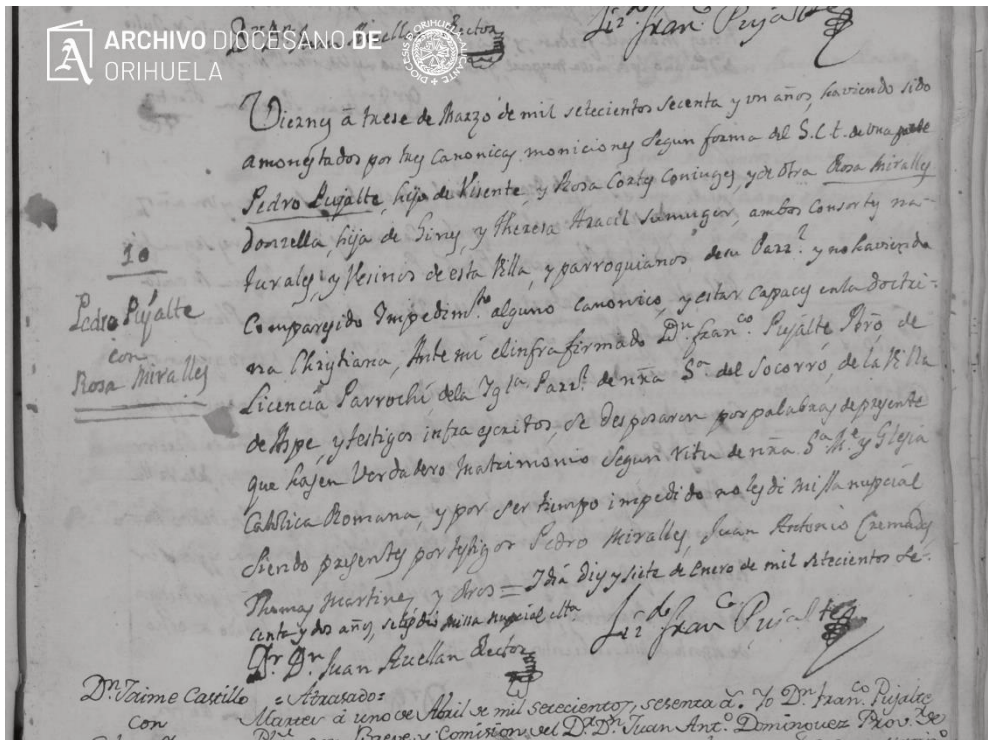 ARCHIVO DIOCESANO DE
ORIHUELA
DIOCESIS DE ORIHUELA-ALICANTE
Rector
Liz.do Fran.co Pujalte
Viernes â trese de Marzo de mil setecientos secenta y vn años, haviendo sido
amonestados por tres canonicas moniciones segun forma del S.C.t. de vna parte
Pedro Pujalte, hijo de Visente, y Rosa Cortes Coniuges, y de otra Rosa Miralles
donzella, hija de Gines, y Theresa Aracil su muger, ambos consortes na-
turales, y Vesinos de esta Villa, y parroquianos de su Parr.l y no haviendo
Comparesido Impedim.to alguno canonico, y estar capaces en la doctri-
na Christiana, Ante mi el infra firmado D.n Fran.co Pujalte Pbro de
Licencia Parrochi, de la Ygl.a Parr.l de nra S.ra del Socorro, de la Villa
de Aspe, y testigos infra escritos, se desposaron por palabras de presente
que hasen verdadero matrimonio segun ritu de nra S.ta M.e Yglesia
Catholica Romana, y por ser tiempo impedido no les di missa nupcial
siendo presentes por testigos Pedro Miralles, Juan Antonio Cremades,
Thomas Martines, y otros = I dia dies y siete de Enero de mil setecientos se-
centa y dos años, se les dio missa nupcial
Liz.do Fran.co Pujalte
D.r D.n Juan Avellan Rector
10
Pedro Pujalte
con
Rosa Miralles
D.n Jaime Castillo
con
= Atrasado =
Martes â uno de Abril de mil setecientos, sesenta â. Yo D.n Fran.co Pujalte
Breve, y Comision del D.r D.n Juan Ant.o Dominguez Prov.r de